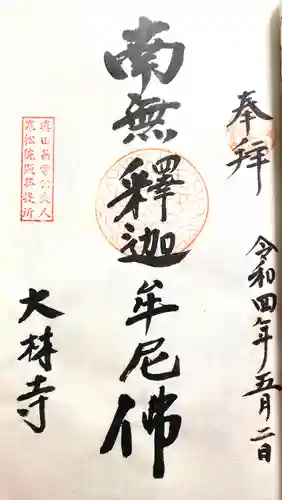 奉拝
令和四年五月二日
南無釋迦牟尼佛
真田昌幸公夫人
寒松院殿菩提所
大林寺